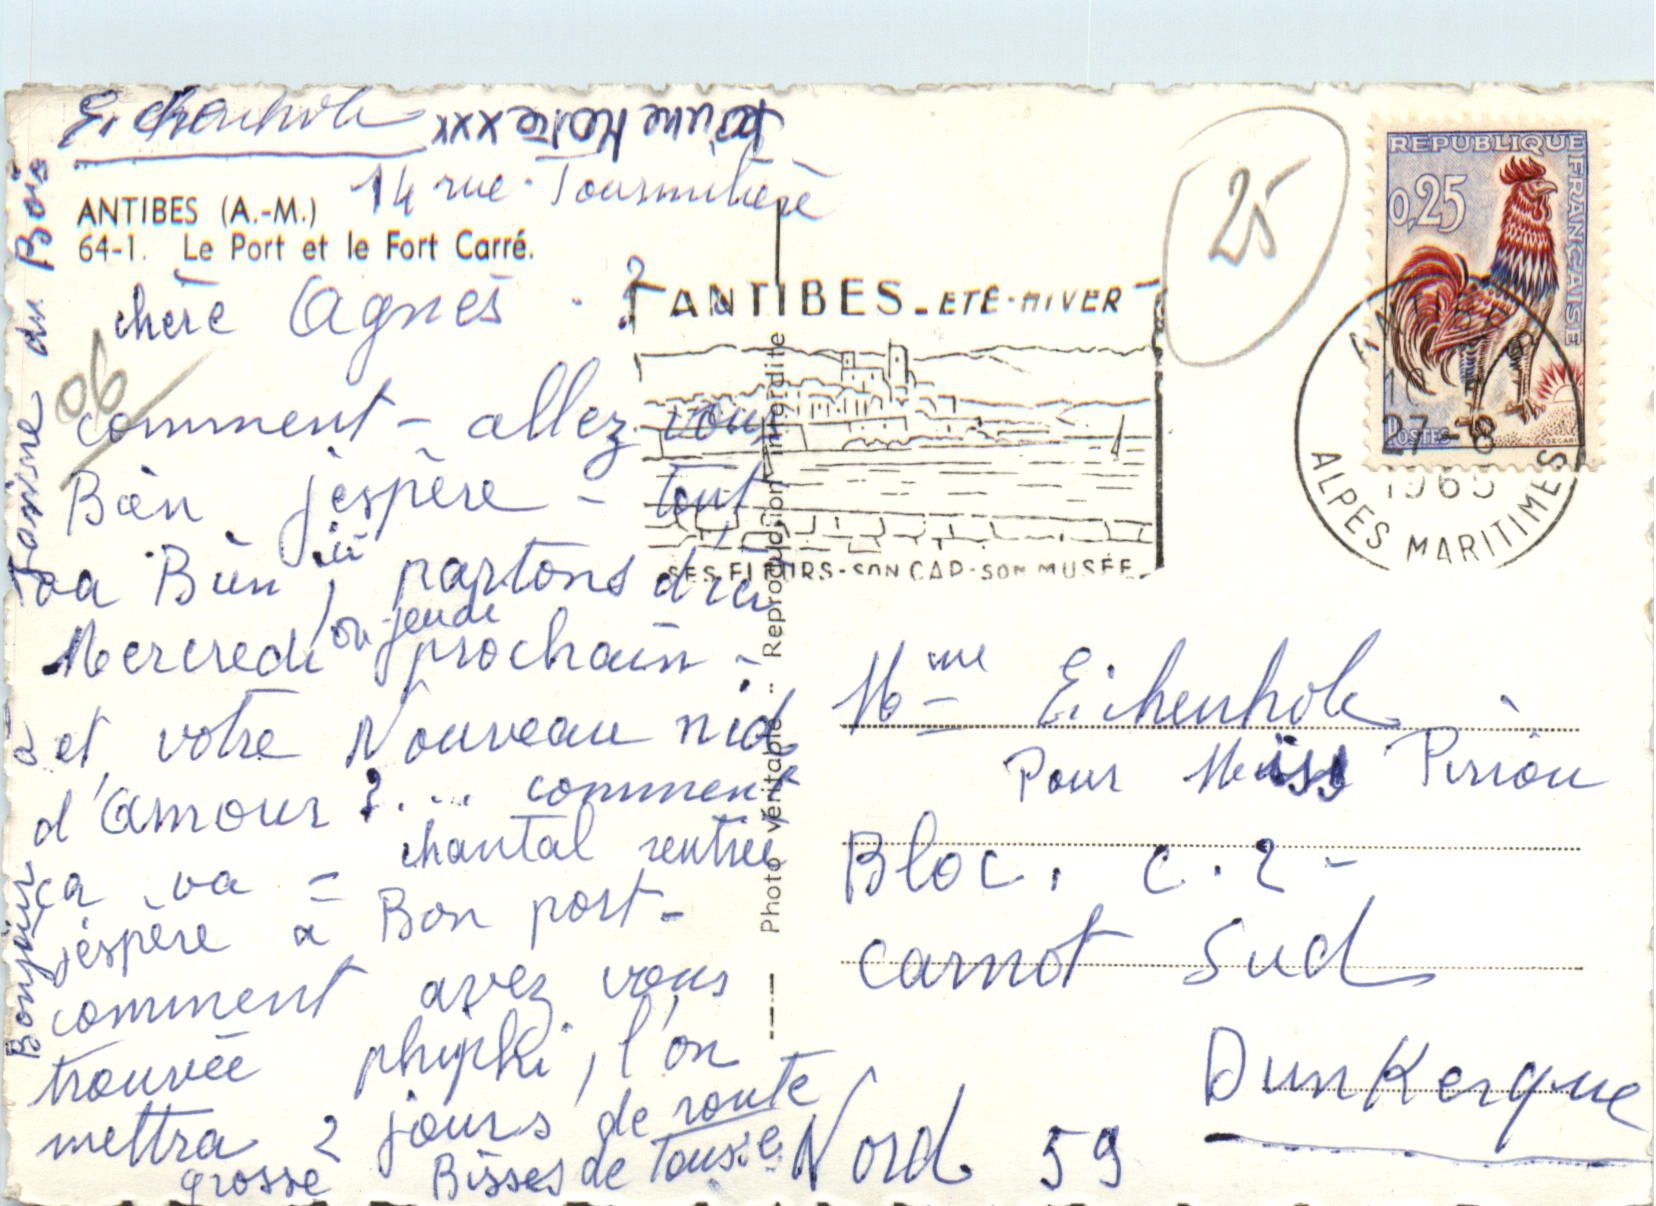 Eichenholc
14 rue Tourmilière
ANTIBES (A.-M.)
64-1. Le Port et le Fort Carré.
chère Agnès
comment - allez vous
Bien j'espère - tout
va Bien ici, partons d'ici
Mercredi ou jeudi prochain -
et votre Nouveau nid
d'Amour ?... comment
ça va = chantal rentrée
j'espère a Bon port -
comment avez vous
trouvée phipki, l'on
mettra 2 jours de route
grosse Bisses de Tousse
Bonjour à du Bois
06
25
ANTIBES - ETÉ - HIVER
SES FLEURS - SON CAP - SON MUSÉE
REPUBLIQUE FRANÇAISE
0,25
POSTES
27-8
1965
ALPES MARITIMES
Photo véritable - Reproduction interdite
Mme Eichenholc
Pour Miss Piriou
Bloc. C.2 -
Carnot Sud
Dunkerque
Nord 59